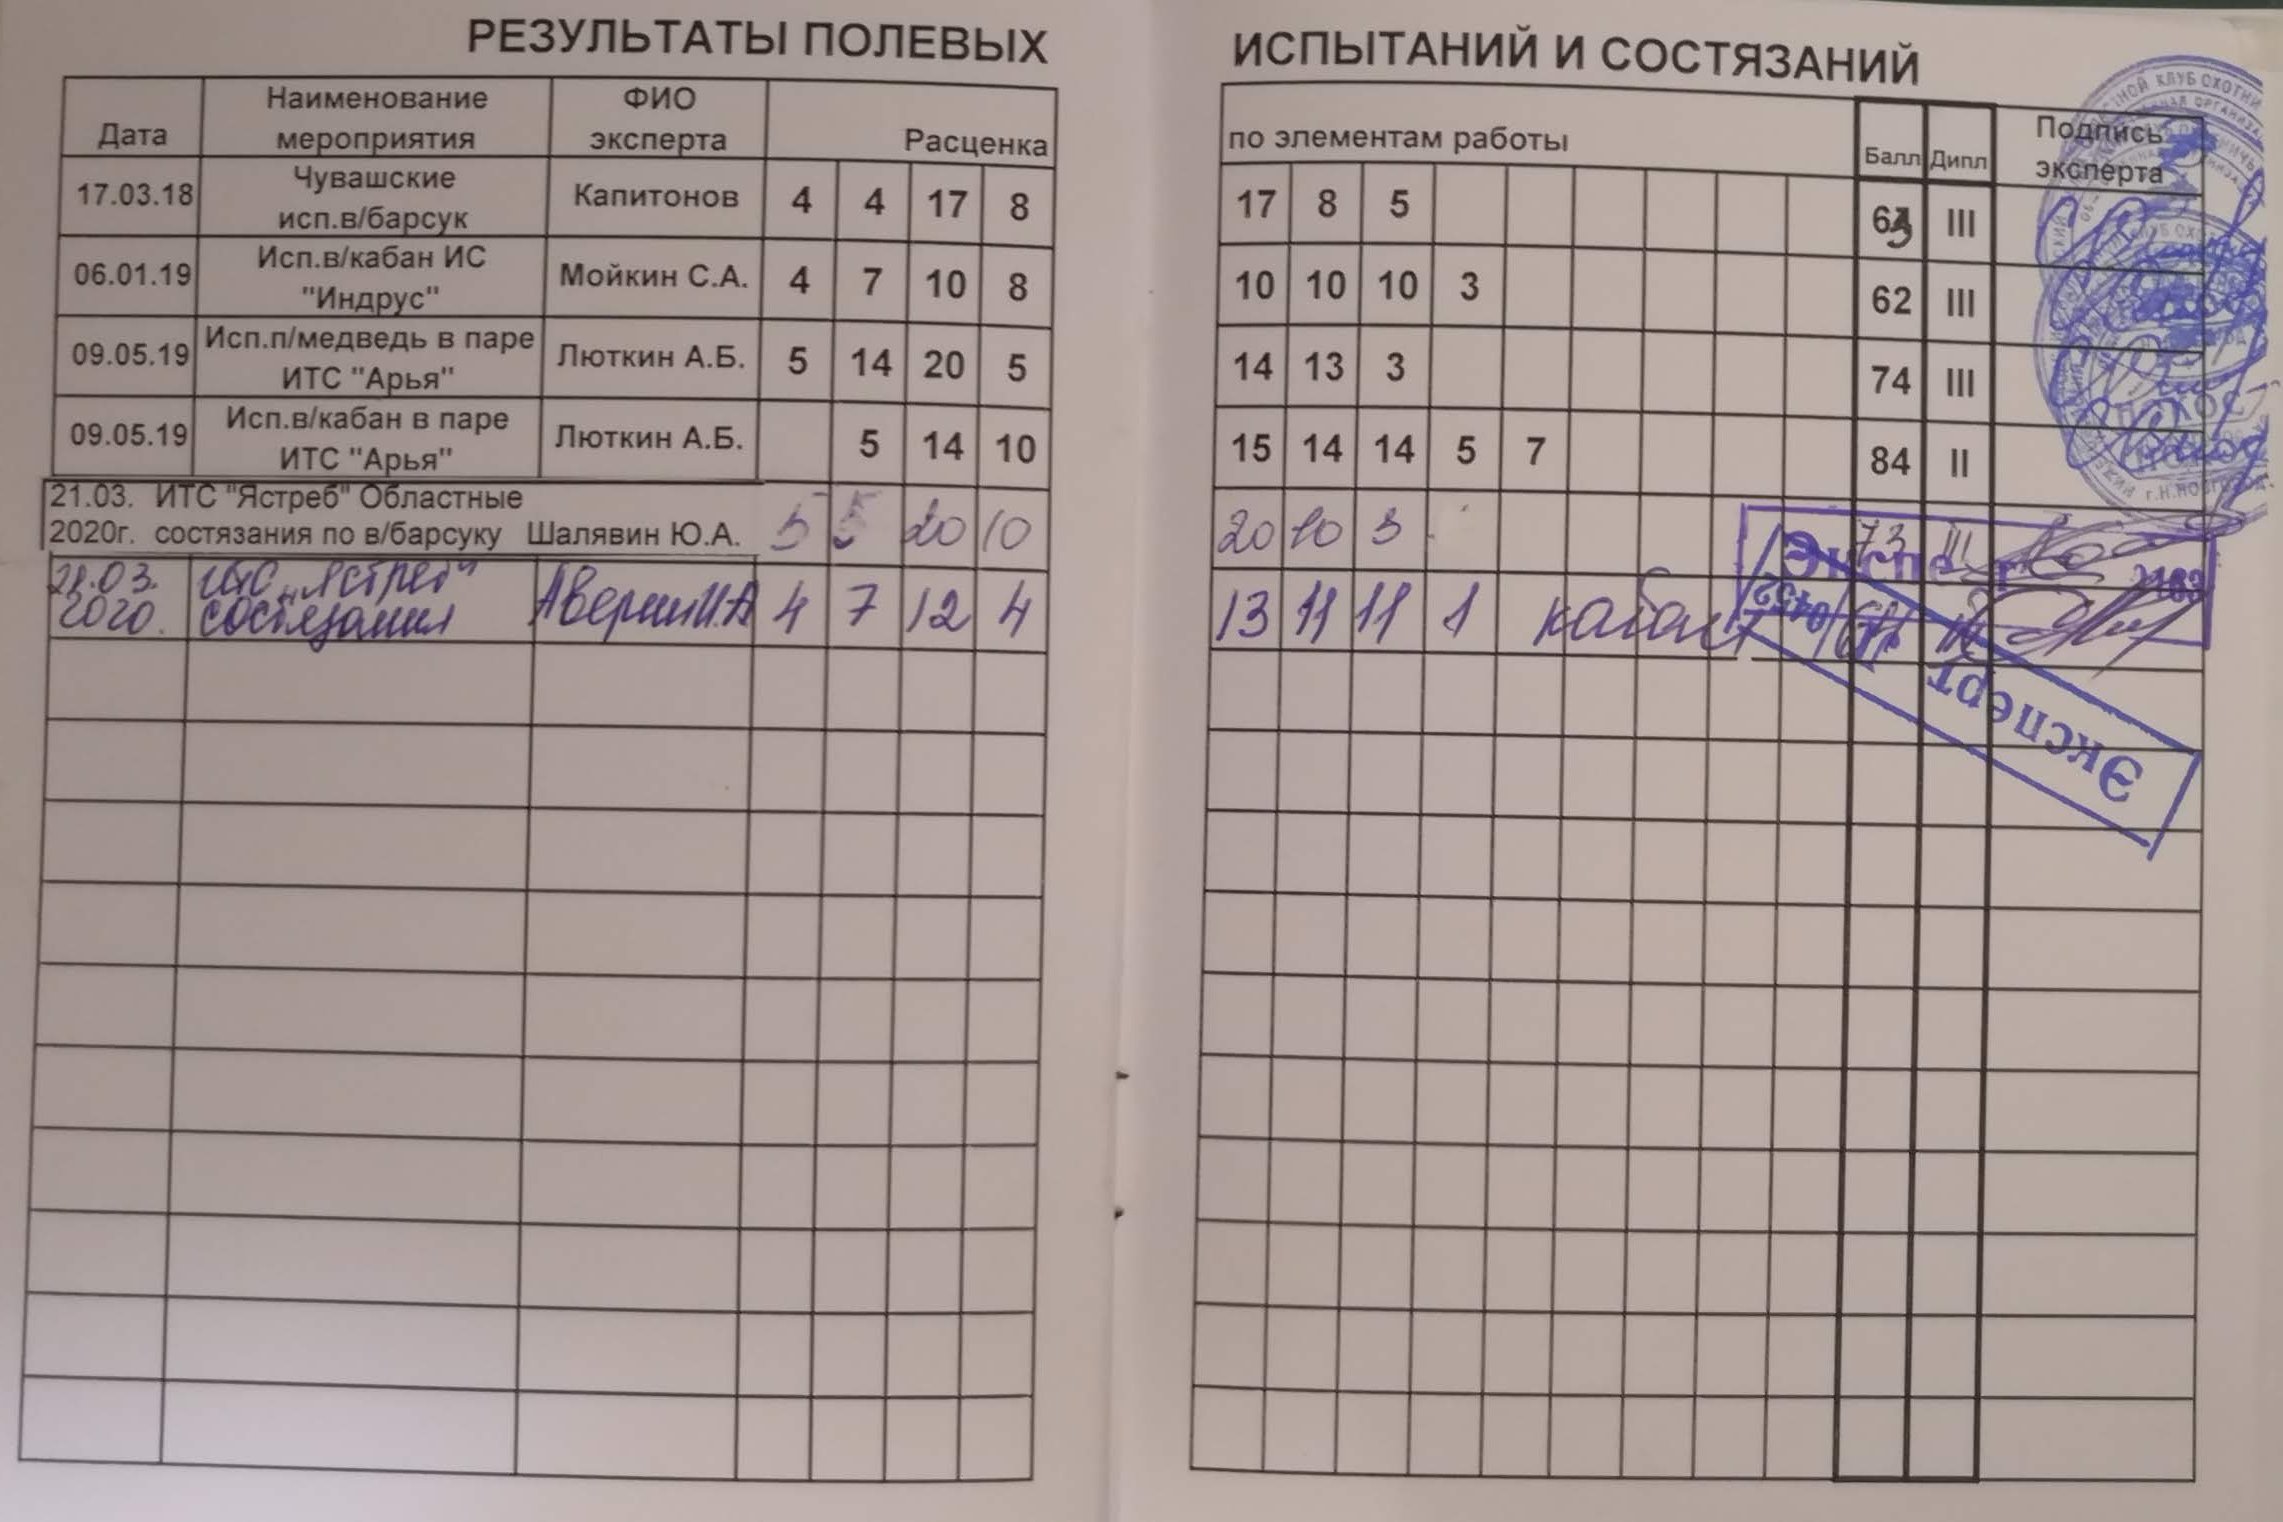 РЕЗУЛЬТАТЫ ПОЛЕВЫХ ИСПЫТАНИЙ И СОСТЯЗАНИЙ
Дата Наименование мероприятия ФИО эксперта Расценка по элементам работы Балл Дипл Подпись эксперта
17.03.18 Чувашские исп.в/барсук Капитонов 4 4 17 8 17 8 5 63 III
06.01.19 Исп.в/кабан ИС "Индрус" Мойкин С.А. 4 7 10 8 10 10 10 3 62 III
09.05.19 Исп.п/медведь в паре ИТС "Арья" Люткин А.Б. 5 14 20 5 14 13 3 74 III
09.05.19 Исп.в/кабан в паре ИТС "Арья" Люткин А.Б. 5 14 10 15 14 14 5 7 84 II
21.03. ИТС "Ястреб" Областные
2020г. состязания по в/барсуку Шалявин Ю.А. 5 5 20 10 20 10 3 73 III
21.03. 2020. ИТС "Ястреб" состязания Аверин И.А 4 7 12 4 13 11 11 1 кабан
Эксперт
Эксперт 0452
г.Н.НОВГОРОД